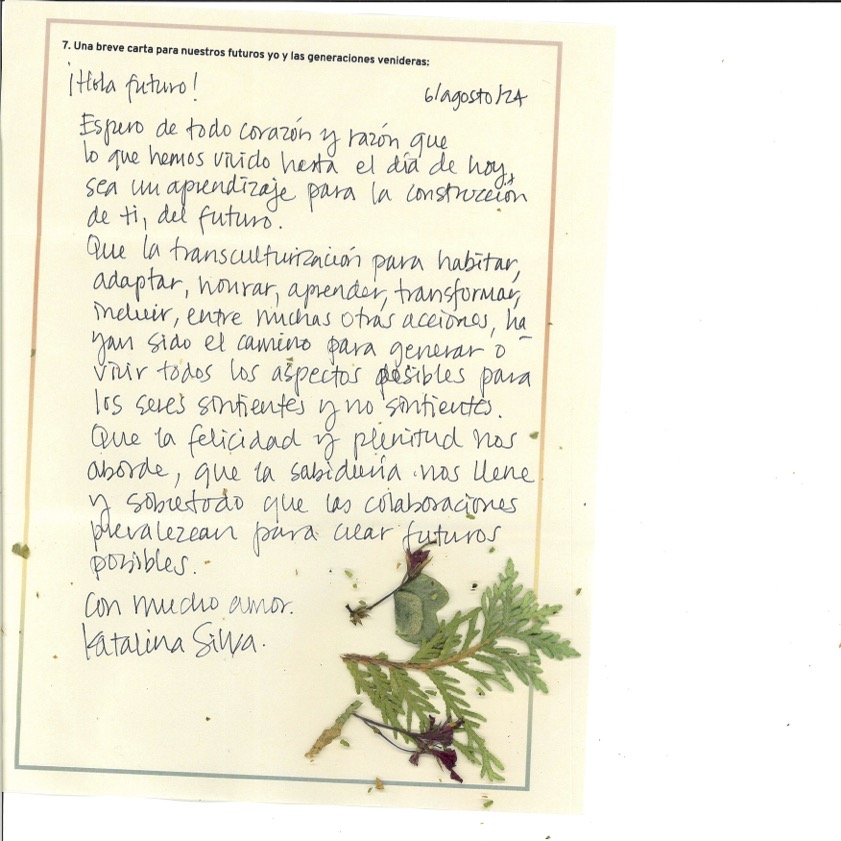 7. Una breve carta para nuestros futuros yo y las generaciones venideras:
¡Hola futuro!
6/agosto/24
Espero de todo corazón y razón que
lo que hemos vivido hasta el día de hoy,
sea un aprendizaje para la construcción
de ti, del futuro.
Que la transculturización para habitar,
adaptar, honrar, aprender, transformar,
incluir, entre muchas otras acciones, ha-
yan sido el camino para generar o
vivir todos los aspectos posibles para
los seres sintientes y no sintientes.
Que la felicidad y plenitud nos
aborde, que la sabiduría nos llene
y sobretodo que las colaboraciones
prevalezcan para crear futuros
posibles.
Con mucho amor.
Katalina Silva.